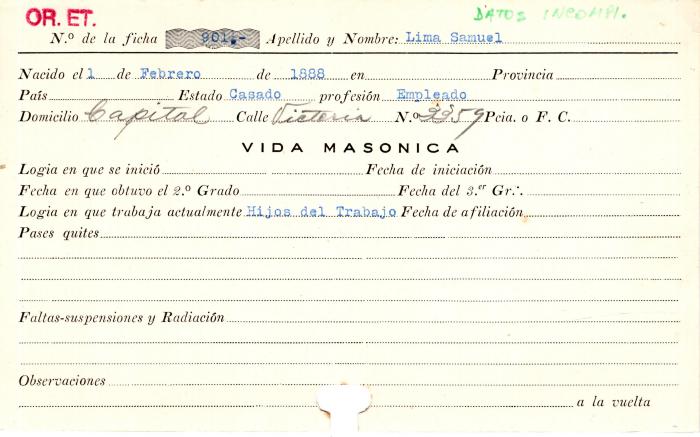 OR. ET.
DATOS INCOMPl.
N.º de la ficha 901.- Apellido y Nombre: Lima Samuel
Nacido el 1 de Febrero de 1888 en Provincia
País Estado Casado profesión Empleado
Domicilio Capital Calle Victoria N.º 3359 Pcia. o F. C.
VIDA MASONICA
Logia en que se inició Fecha de iniciación
Fecha en que obtuvo el 2.º Grado Fecha del 3.er Gr∴
Logia en que trabaja actualmente Hijos del Trabajo Fecha de afiliación
Pases quites
Faltas-suspensiones y Radiación
Observaciones
a la vuelta